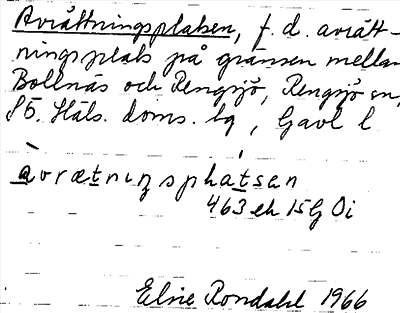 Avrättningsplatsen, f. d. avrätt-
ningsplats på gränsen mellan
Bollnäs och Rengsjö, Rengsjö sn,
SÖ. Häls. doms. lg, Gävl l
avrætnıŋsplatsen
463 ek 15G Öi
Elsie Rondahl 1966